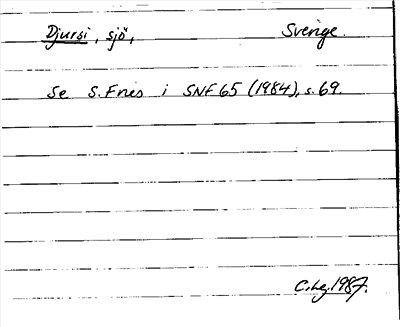 Djursi, sjö, Sverige.
Se S. Fries i SNF 65 (1984), s. 69.
1987.